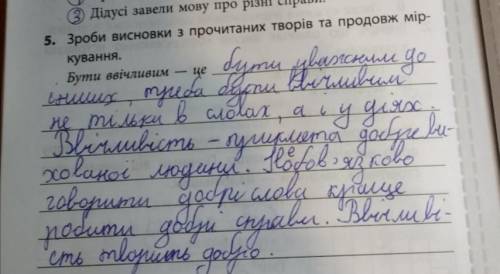 ③ Дідусі завели мову про різні справи.
5. Зроби висновки з прочитаних творів та продовж мір-
кування.
Бути ввічливим — це бути уважним до
інших, треба бути ввічливим
не тільки в словах, а і у діях.
Ввічливість – прикмета добре ви-
хованої людини. Необов'язково
говорити добрі слова краще
робити добрі справи. Ввічливі-
сть творить добро.